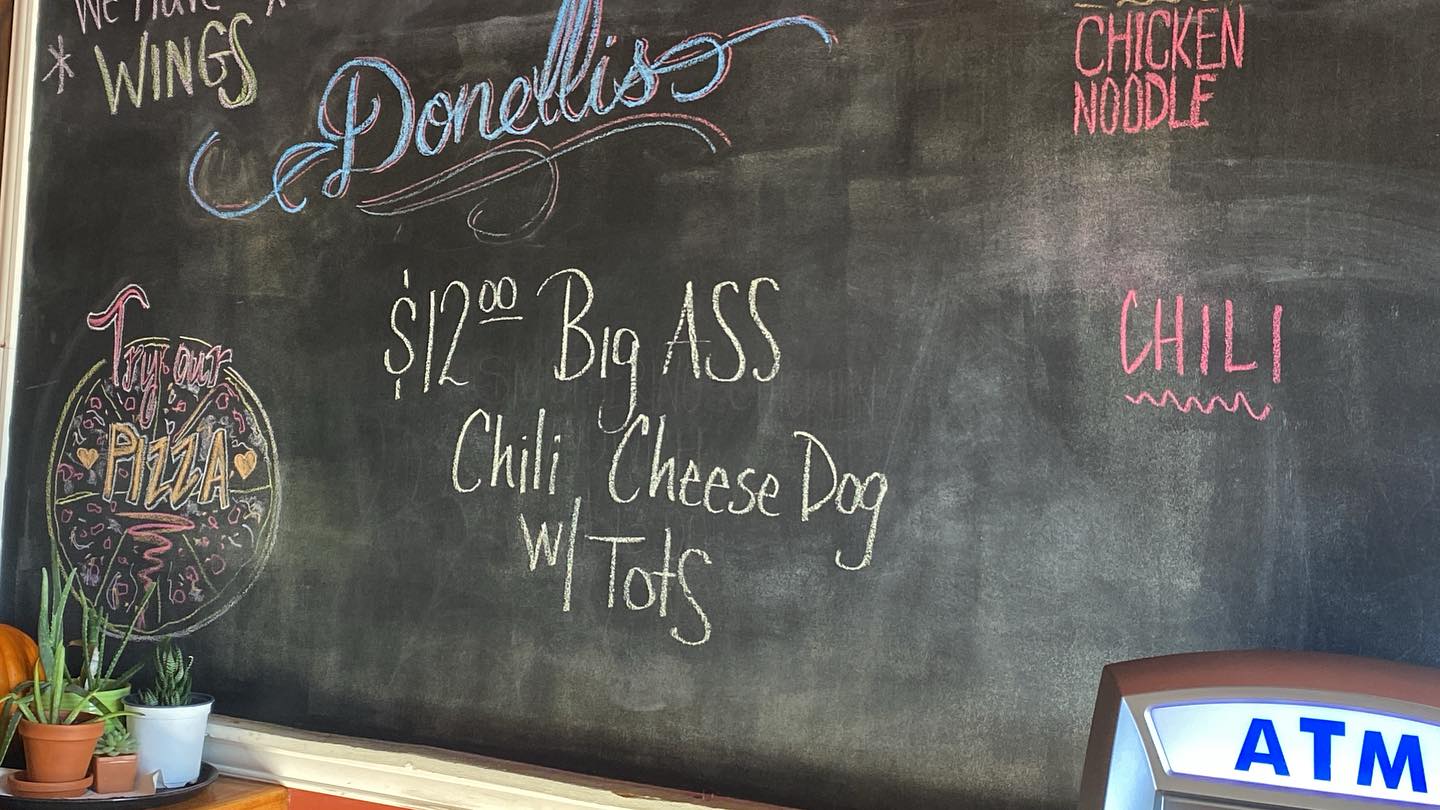 We Have
* WINGS
Donellis
Try our
PIZZA
$12.00 Big ASS
Chili Cheese Dog
w/ Tots
CHICKEN
NOODLE
CHILI
ATM